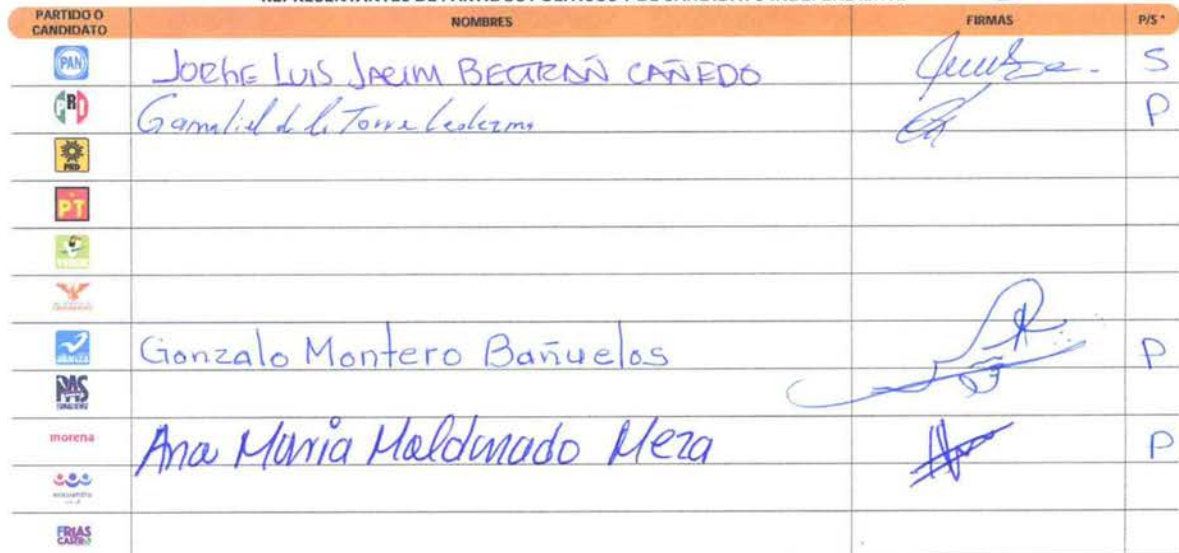 PARTIDO O CANDIDATO NOMBRES FIRMAS P/S *
PAN JORGE LUIS BELTRÁN CAÑEDO S
PRI Gamaliel de la Torre Ledezma P
PRD
PT
VERDE
alianza Gonzalo Montero Bañuelos P
PAS
morena Ana Maria Maldonado Meza P
encuentro
FRIAS CASTRO